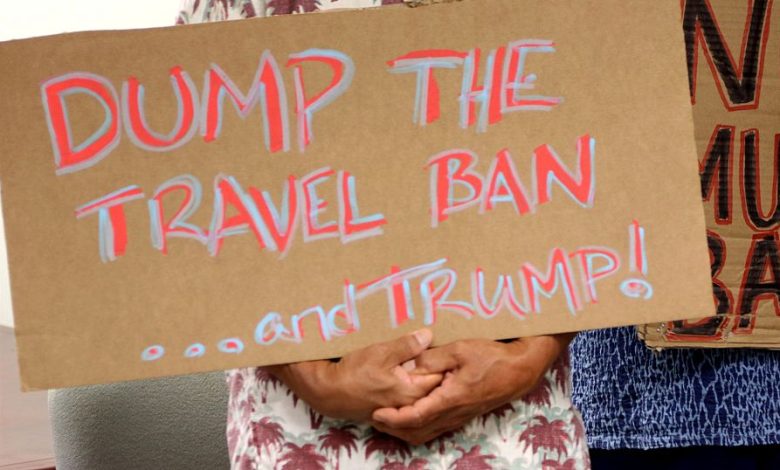 DUMP THE
TRAVEL BAN
...and TRUMP!
N
MU
BA